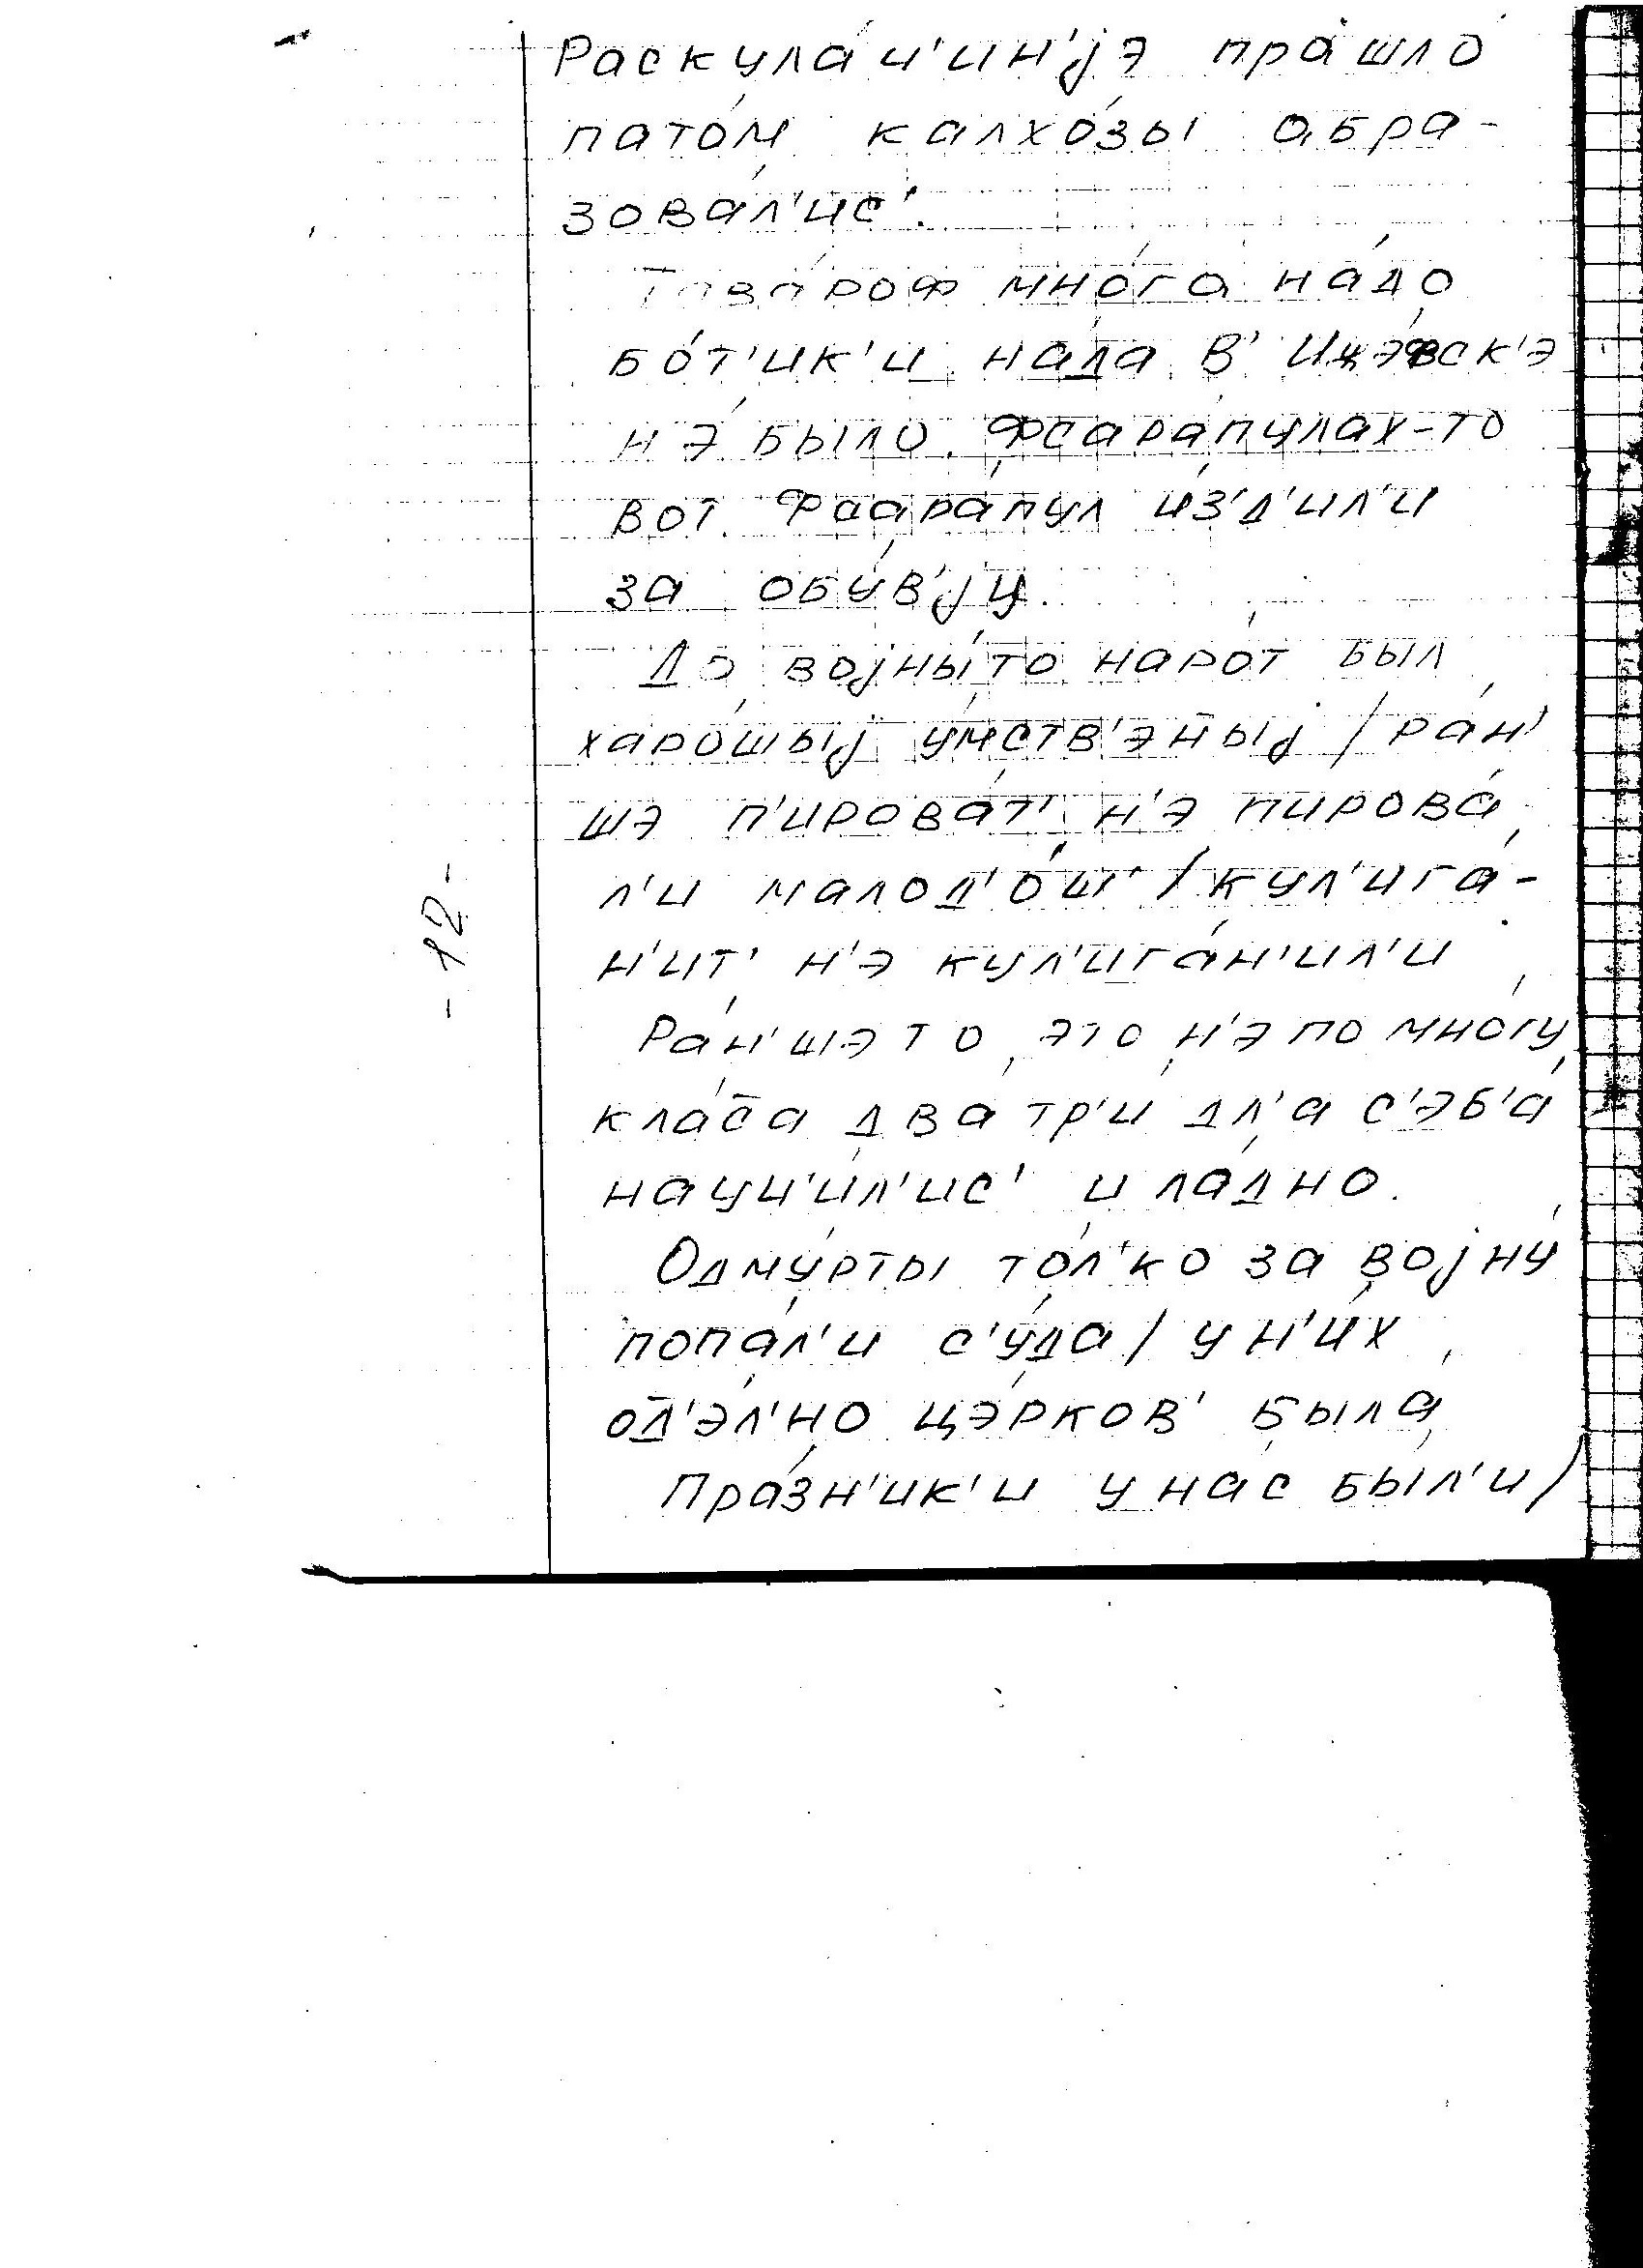 Раскула́ч'ин'jэ прашло́
пато́м калхо́зы абра-
зова́л'ис'.
Това́роф мно́га на́до
бо́т'ик'и на́да В'
н'э́ было. Фсара́пулах-то
вот. Фсара́пул и́з'д'ил'и
за обу́в'jу.
До воjны́то наро́т был
харо́шыj у́мств'эн̄ыj / ра́н'
шэ п'ирова́т' н'э пирова́
л'и малод'о́ш' / кул'ига́-
н'ит' н'э кул'ига́н'ил'и
Ра́н'шэ то это н'э по мно́гу
кла́с̄а два три́ дл'а с'эб'а́
науч'и́л'ис' и ла́дно.
Одму́рты то́л'ко за воjну́
попа́л'и с'уда́ / у н'и́х
од̄'э́л'но цэ́рков' была́
Пра́зн'ик'и у нас бы́л'и /
-12-